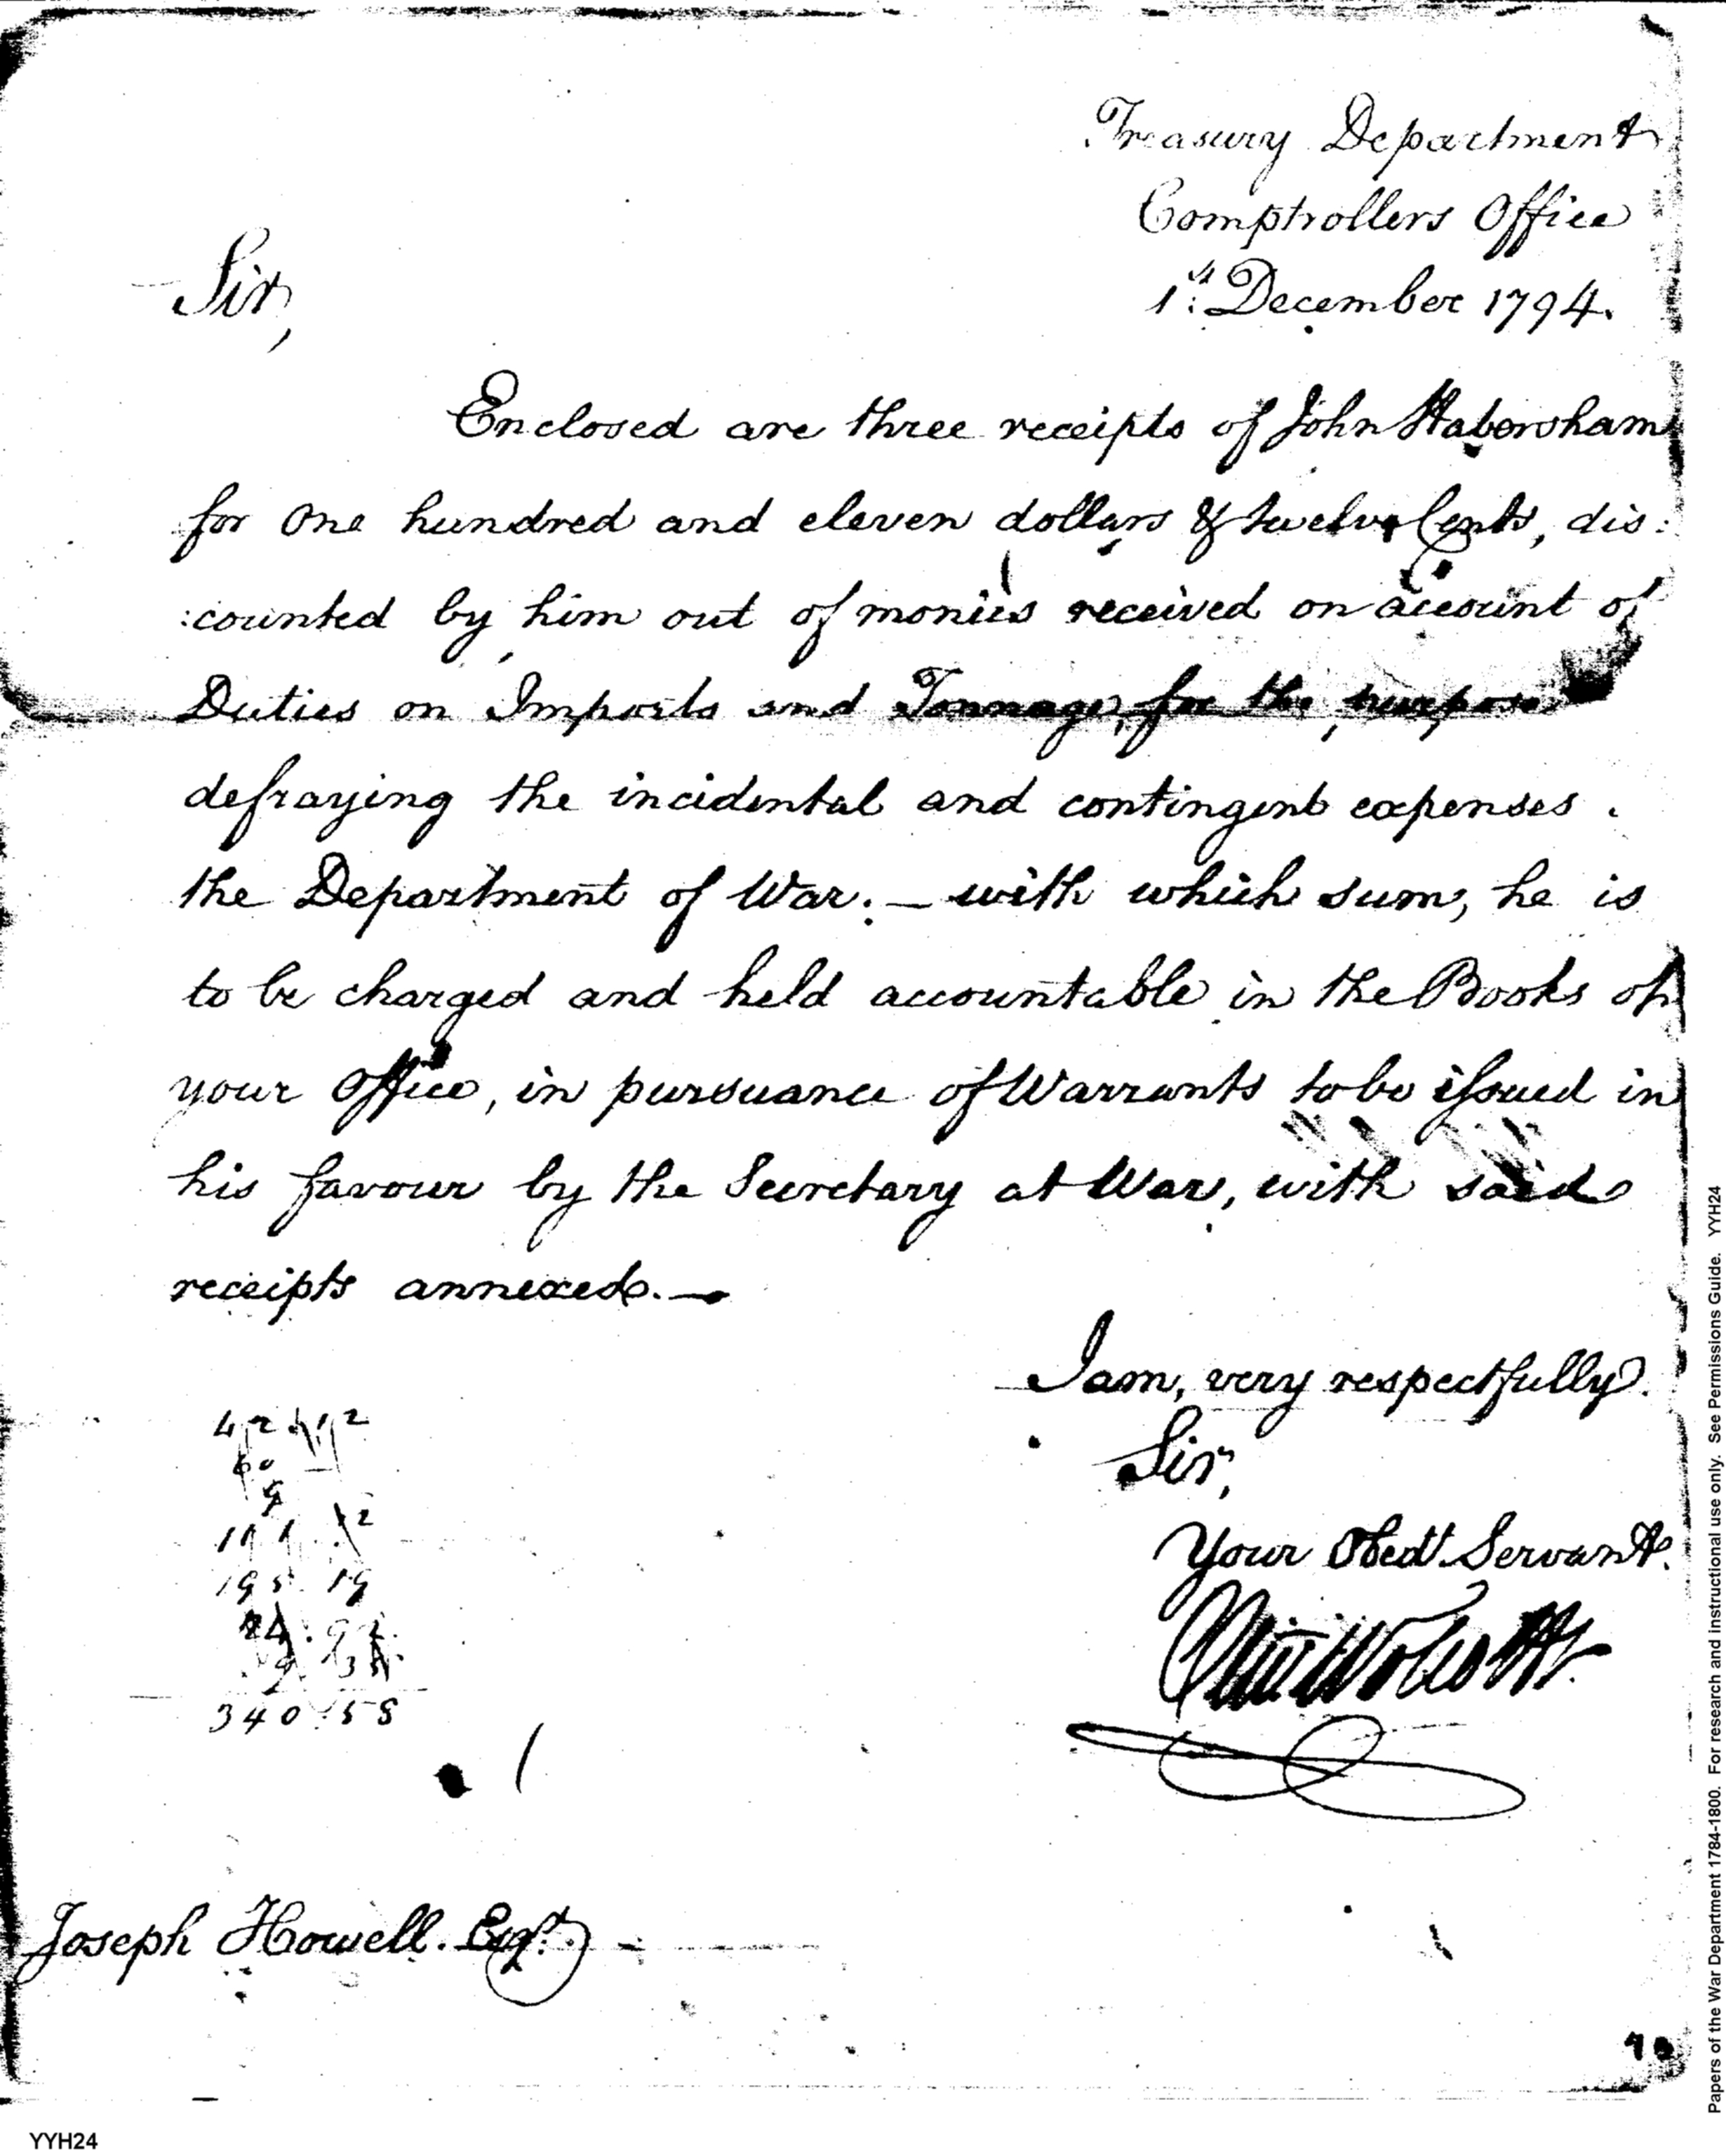 Treasury Department
Comptrollers Office
1st December 1794.
Sir,
Enclosed are three receipts of John Habersham
for One hundred and eleven dollars & twelve Cents, dis:
:counted by him out of monies received on account of
Duties on Imports and Tonnage, for the purpose
defraying the incidental and contingent expenses
the Department of War. — with which sum, he is
to be charged and held accountable in the Books of
your Office, in pursuance of Warrants to be issued in
his favour by the Secretary at War, with said
receipts annexed. —
I am, very respectfully
Sir,
Your Obedt. Servant.
Oliv Wolcott Jr.
42 12
60 —
9
111 . 12
195 . 19
340 . 58
Joseph Howell. Esqr.
YYH24
Papers of the War Department 1784-1800. For research and instructional use only. See Permissions Guide. YYH24